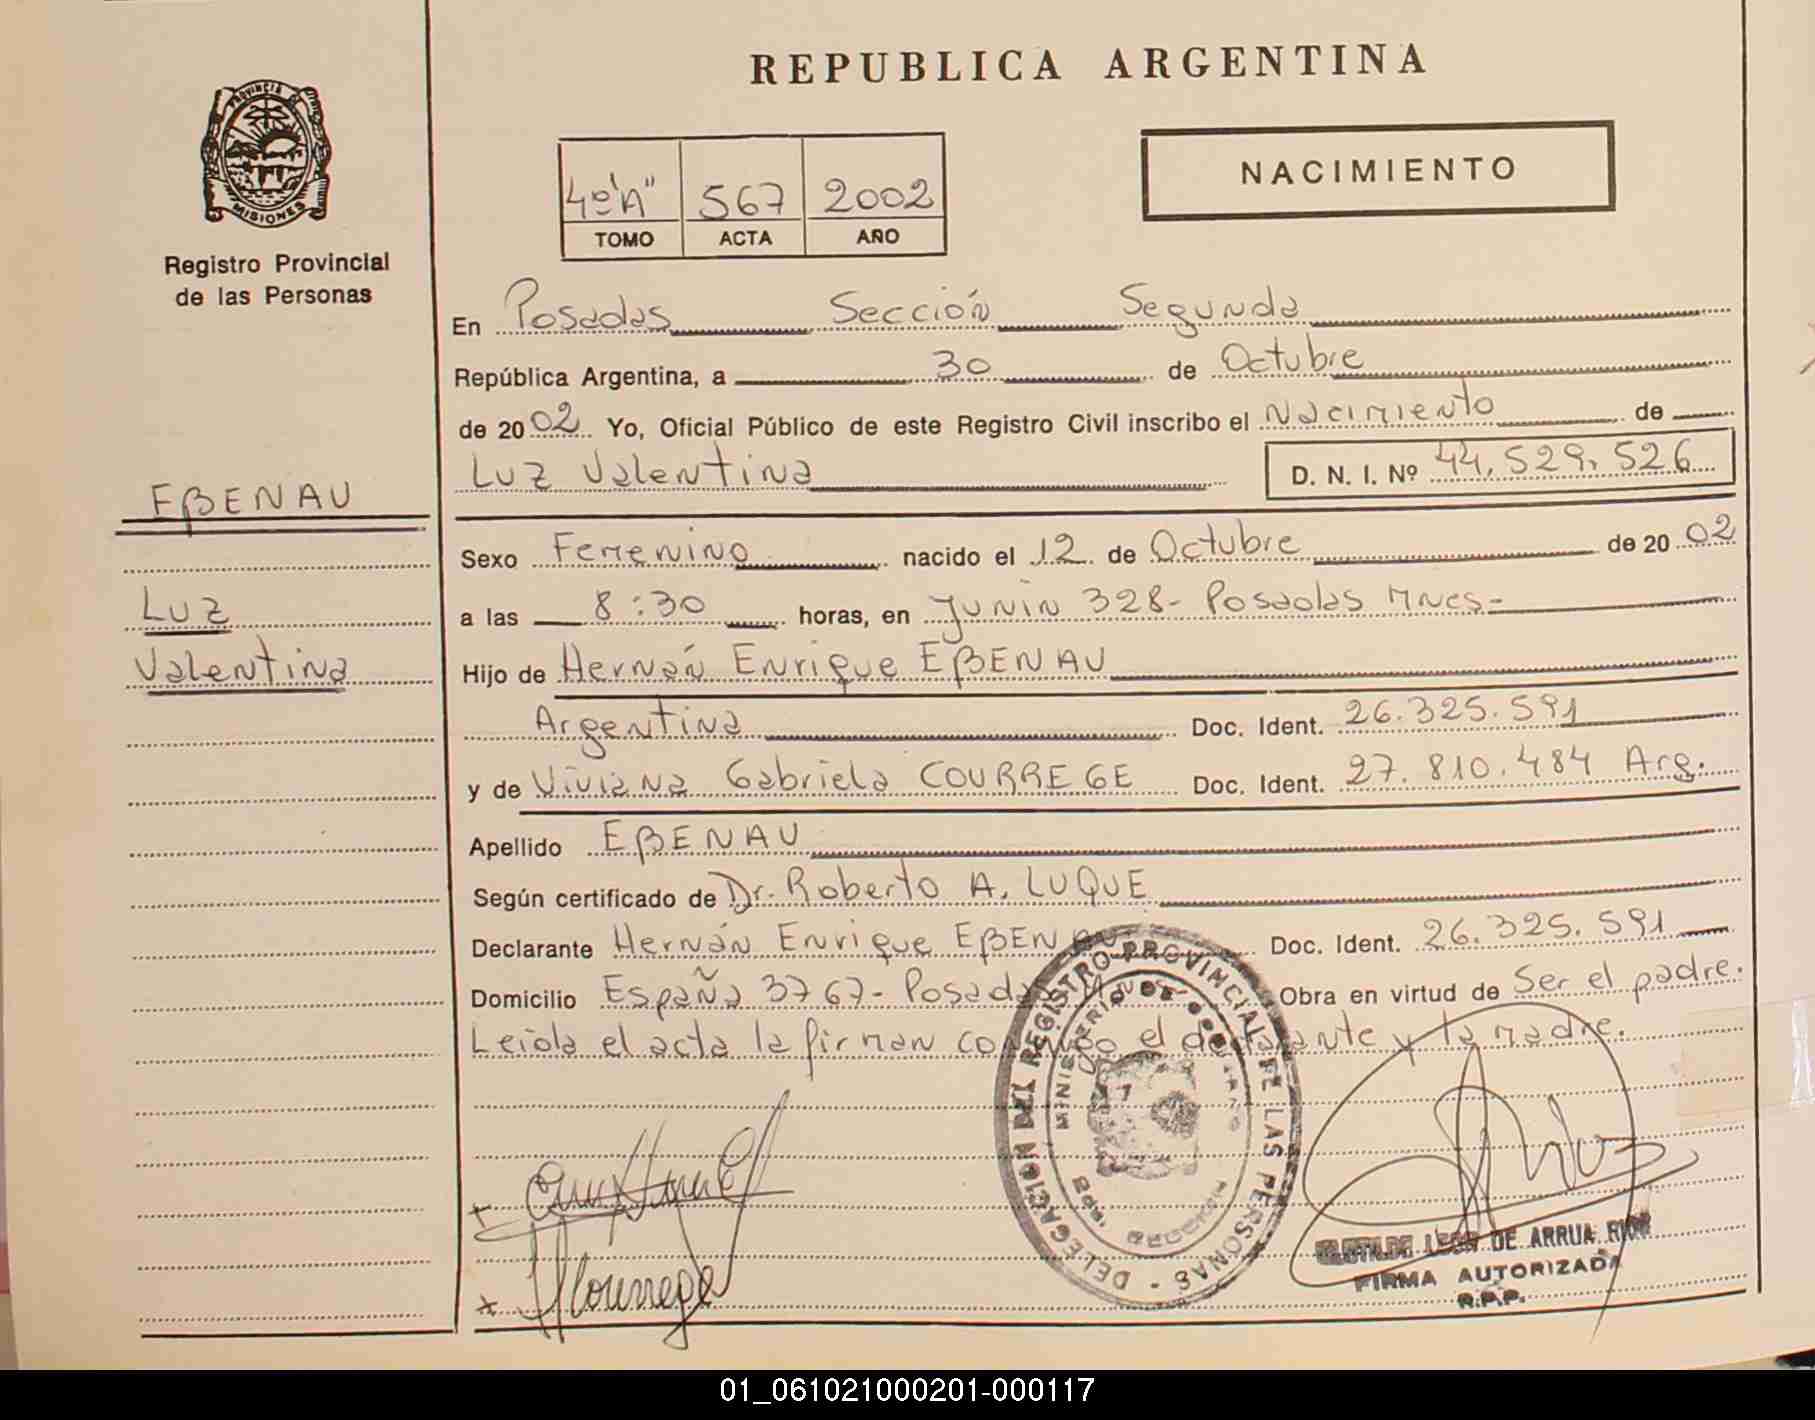 REPUBLICA ARGENTINA
PROVINCIA DE
MISIONES
Registro Provincial
de las Personas
4º "A" 567 2002
TOMO ACTA AÑO
NACIMIENTO
En Posadas Sección Segunda
República Argentina, a 30 de Octubre
de 2002 Yo, Oficial Público de este Registro Civil inscribo el Nacimiento de
Luz Valentina D. N. I. Nº 44.529.526
EβENAU
Luz
Valentina
Sexo Femenino nacido el 12 de Octubre de 2002
a las 8:30 horas, en Junin 328- Posadas Mnes-
Hijo de Hernán Enrique EβENAU
Argentina Doc. Ident. 26.325.591
y de Viviana Gabriela COURREGE Doc. Ident. 27.810.484 Arg.
Apellido EβENAU
Según certificado de Dr. Roberto A. LUQUE
Declarante Hernán Enrique EβENAU Doc. Ident. 26.325.591
Domicilio España 3767- Posadas Obra en virtud de Ser el padre.
Leida el acta la firman conmigo el declarante y la madre.
DELEGACION DEL REGISTRO PROVINCIAL DE LAS PERSONAS
MINISTERIO DE
VCourrege
LEON DE ARRUA
FIRMA AUTORIZADA
R.P.P.
01_061021000201-000117